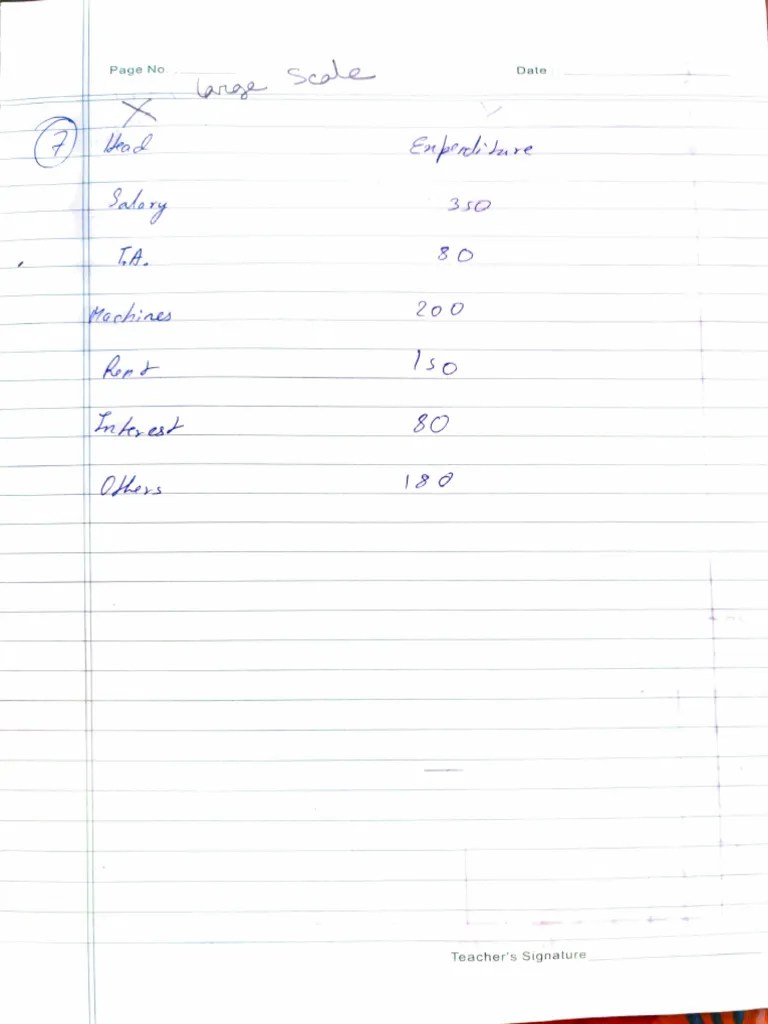 Page No
Date
Large Scale
X
7 Head Expenditure
Salary 350
T.A. 80
Machines 200
Rent 150
Interest 80
Others 180
Teacher's Signature